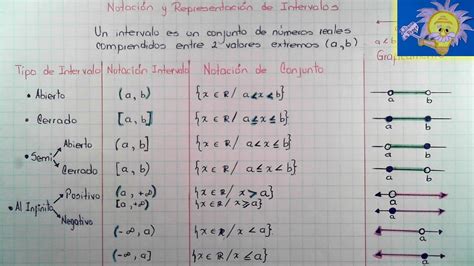 Notación y Representación de Intervalos
Un intervalo es un conjunto de números reales
comprendidos entre 2 valores extremos (a,b)
Tipo de Intervalo Notación Intervalo Notación de Conjunto
• Abierto (a, b) {x ∈ R/ a<x<b} a b
• Cerrado [a, b] {x ∈ R/ a≤x≤b} a b
• Semi
Abierto (a, b] {x ∈ R/ a<x≤b} a b
Cerrado [a, b) {x ∈ R/ a≤x<b} a b
• Al Infinito
Positivo (a, +∞) {x ∈ R/ x>a} a
[a, +∞) {x ∈ R/ x≥a} a
Negativo
(-∞, a) {x ∈ R/ x<a} a
(-∞, a] {x ∈ R/ x≤a}